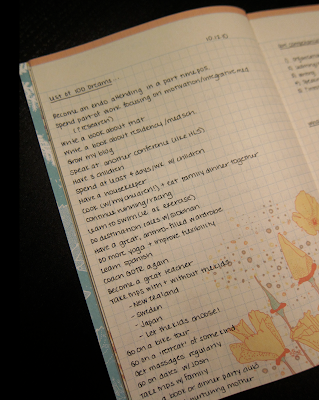 10.13.10
LIST OF 100 DREAMS...
Become an endo attending in a part time pos.
Spend part of work focusing on motivation/integrative med
(? research)
Write a book about that
Write a book about residency/med sch.
Grow my blog
Speak at another conference (like ITLS)
Have 3 children
Spend at least 4 days/wk w/ children
Have a housekeeper
Cook (w/ my children!) + eat family dinner together
Continue running/racing
Learn to swim (i.e. as exercise)
Do destination races w/
Have a great, -filled wardrobe
Do more yoga + improve flexibility
Learn Spanish
Coach GOTR again
Become a great teacher
Take trips with + without the kids
- New Zealand
- Sweden
- Japan
- Let the kids choose!
Go on a bike tour
Go on a retreat of some kind
Get massages regularly
Go on dates w/ Josh
Take trips w/ family
a book or dinner party club
nurturing mother